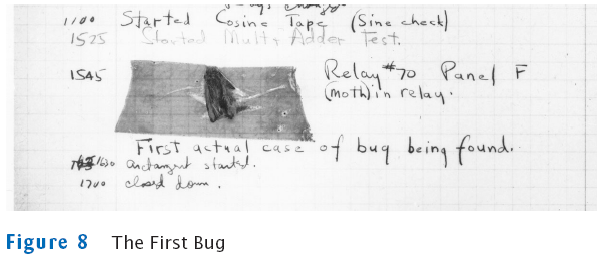 1100 Started Cosine Tape (Sine check)
1525 Started Mult + Adder Test.
1545 Relay #70 Panel F
(moth) in relay.
First actual case of bug being found.
1630 arctangent started.
1700 closed down.
Figure 8 The First Bug